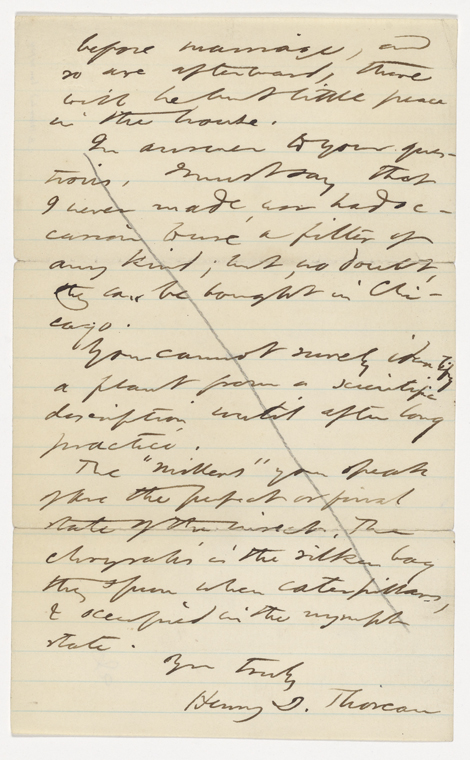 before marriage, and
so are afterward, there
will be but little peace
in the house.
In answer to your ques-
tions, I must say that
I never made, nor had oc-
casion to use a filter of
any kind; but, no doubt,
they can be bought in Chi-
cago.
You cannot surely identify
a plant from a scientific
description until after long
practice.
The "millers" you speak
of are the perfect or final
state of the insect. The
chrysalis is the silken bag
they spun when caterpillars,
& occupied in the nymph
state.
Yrs truly
Henry D. Thoreau